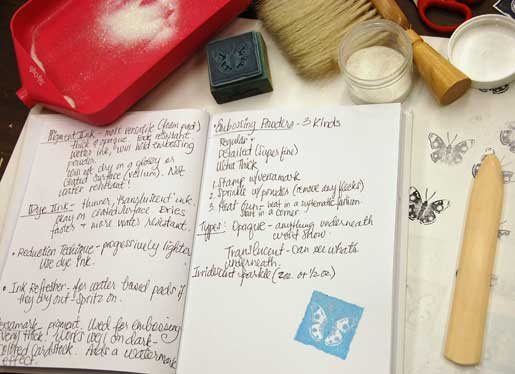 Pigment Ink - most versatile (foam pad)
thick & opaque fade resistant.
wetter ink, will hold embossing
powder.
will not dry on a glossy or
coated surface (vellum). Not
water resistant!
Dye Ink - thinner, translucent ink.
okay on coated surface. Dries
faster & more water resistant.
• Reduction Technique - progressively lighter
use dye ink.
• Ink Refresher - for water based pads if
they dry out - spritz on.
Versamark - pigment. Used for embossing
very thick. Works well on dark-
colored cardstock. Adds a watermark
effect.
• Embossing Powders - 3 Kinds
Regular
Detailed (superfine)
Ultra Thick
1. Stamp w/ versamark
2. Sprinkle w/ powder (remove any flecks)
3. Heat Gun - heat in a systematic fashion.
start in a corner
Types: Opaque - anything underneath
won't show.
Translucent - Can see what's
underneath.
Irridescent Sparkle (2oz. or 1/2 oz)